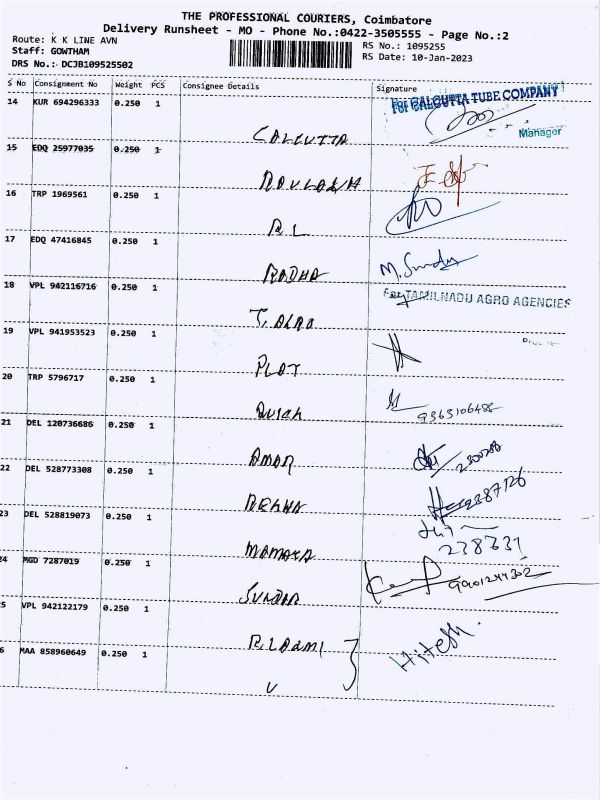 THE PROFESSIONAL COURIERS, Coimbatore
Delivery Runsheet - MO - Phone No.:0422-3505555 - Page No.:2
Route: K K LINE AVN
Staff: GOWTHAM
DRS No.: DCJB109525502
RS No.: 1095255
RS Date: 10-Jan-2023
S No Consignment No Weight PCS Consignee Details Signature
14 KUR 694296333 0.250 1 CALCUTTA For CALCUTTA TUBE COMPANY
Manager
15 EDQ 25977035 0.250 1
16 TRP 1969561 0.250 1 RL
17 EDQ 47416845 0.250 1 RADHA
18 VPL 942116716 0.250 1 For TAMILNADU AGRO AGENCIES
19 VPL 941953523 0.250 1 PLOT
20 TRP 5796717 0.250 1
21 DEL 120736686 0.250 1 AMAR
22 DEL 528773308 0.250 1
23 DEL 528819073 0.250 1 MAMATA
238331
24 MGD 7287019 0.250 1 SUNDAR
25 VPL 942122179 0.250 1
26 MAA 858960649 0.250 1 Hitesh.